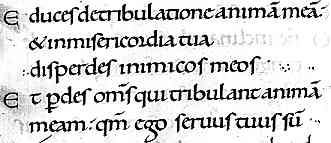 E duces detribulatione animā meā·
& inmisericordia tua
disperdes inimicos meos
E t ꝑdes om̄s qui tribulant animā
meam· qm̄ ego seruus tuus sū